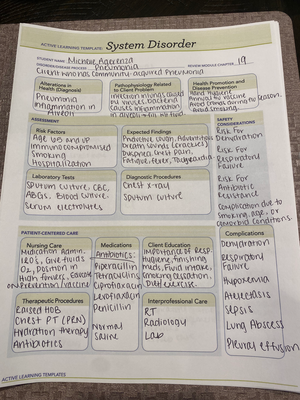 ACTIVE LEARNING TEMPLATE: System Disorder
STUDENT NAME Michelle
DISORDER/DISEASE PROCESS Pneumonia
REVIEW MODULE CHAPTER 19
Client who has community-acquired pneumonia
Alterations in
Health (Diagnosis)
Pneumonia
Inflammation in
Pathophysiology Related
to Client Problem
Infection in lungs caused
by virus, bacteria
causes inflammation
in alveoli
Health Promotion and
Disease Prevention
Hand Hygiene
Annual flu vaccine
Avoid crowds during flu season
Avoid smoking
ASSESSMENT
SAFETY
CONSIDERATIONS
Risk Factors
Age 65 and up
Immunocompromised
Smoking
Hospitalization
Expected Findings
Productive cough, Adventitious
breath sounds (crackles)
Dyspnea, Chest Pain,
Fatigue, Fever, Tachycardia
Risk For
Dehydration
Risk For
Respiratory
Failure
Risk For
Antibiotic
Resistance
Complication due to
smoking, age, or
conditions
Laboratory Tests
Sputum culture, CBC,
ABGs, Blood culture,
Serum electrolytes
Diagnostic Procedures
Chest x-ray
Sputum culture
PATIENT-CENTERED CARE
Complications
Nursing Care
Medication Admin.
Give fluids
O2, Position
High fowlers, cough
Medications
Antibiotics:
Piperacillin
Ciprofloxacin
Levofloxacin
Penicillin
Normal
Saline
Client Education
Importance of Resp.
Hygiene, finishing
Meds, Fluid intake,
Diet/exercise
Dehydration
Respiratory
Failure
Hypoxemia
Atelectasis
Sepsis
Lung Abscess
Pleural effusion
Therapeutic Procedures
Raised HOB
Chest PT (PRN)
Hydration therapy
Antibiotics
Interprofessional Care
RT
Radiology
Lab
ACTIVE LEARNING TEMPLATES